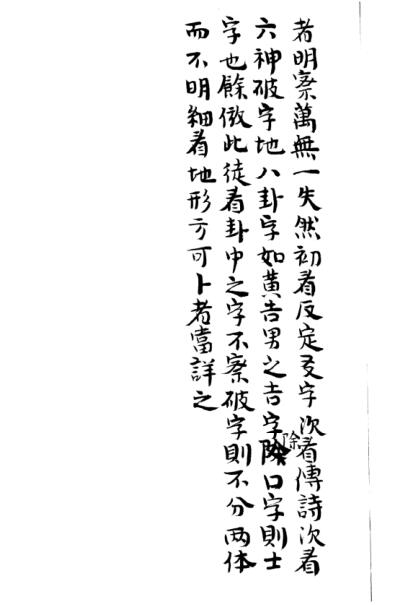 者明察萬無一失然初看反定爻字次看傳詩次看
六神破字地八卦字如黃吉男之吉字除口字則士
字也餘倣此徒看卦中之字不察破字則不分两体
而不明細看地形方可卜者當詳之